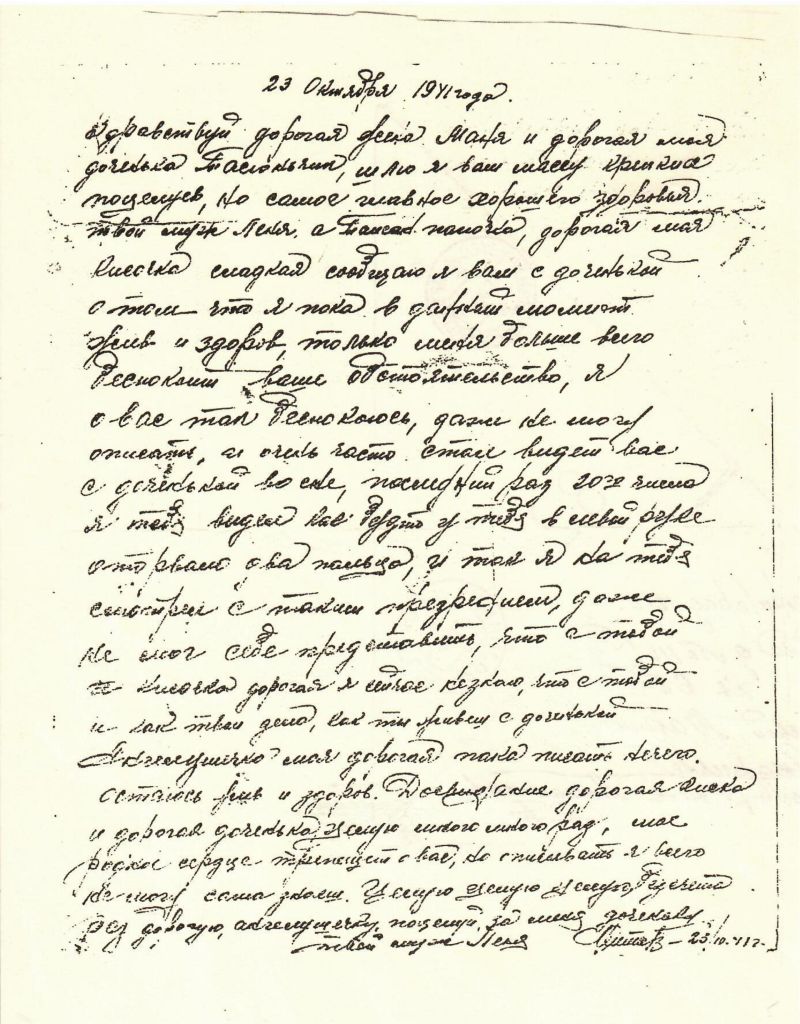 23 Октября 1941 года.
Здравствуй дорогая жена Маня и дорогая моя
доченька шлю я вам массу крепких
поцелуев, но самое главное хорошего здоровья.
твой муж Леня. а папочка, дорогая моя
Кисочка сладкая сообщаю я вам с доченькой
о том что я пока в данный момент
жив и здоров, только меня больше всего
беспокоит ваше обстоятельство, я
о вас так беспокоюсь, даже не могу
описать, и очень часто стал видет вас
с доченькой во сне, последний раз 20го числа
я тебя видел как будто у тебя в левой руке
оторвало два пальца, и так я на тебя
смотрел с таким даже
не мог себе представить, что с тобой
Кисочка дорогая я сейчас незнаю, что с тобой
и как твои дела, как ты живеш с доченькой
Ангелушечка моя дорогая пока писать нечего.
остаюсь жив и здоров. Досвидание дорогая Киска
и дорогая доченька, целую много много раз, мое
родное сердце трепещет о вас, но описывать я всего
не могу сама знаеш. Целую целую целую, безсчета
раз дорогую, ангелушечку, поцелуй за меня
твой муж Леня 23/10.41 г.